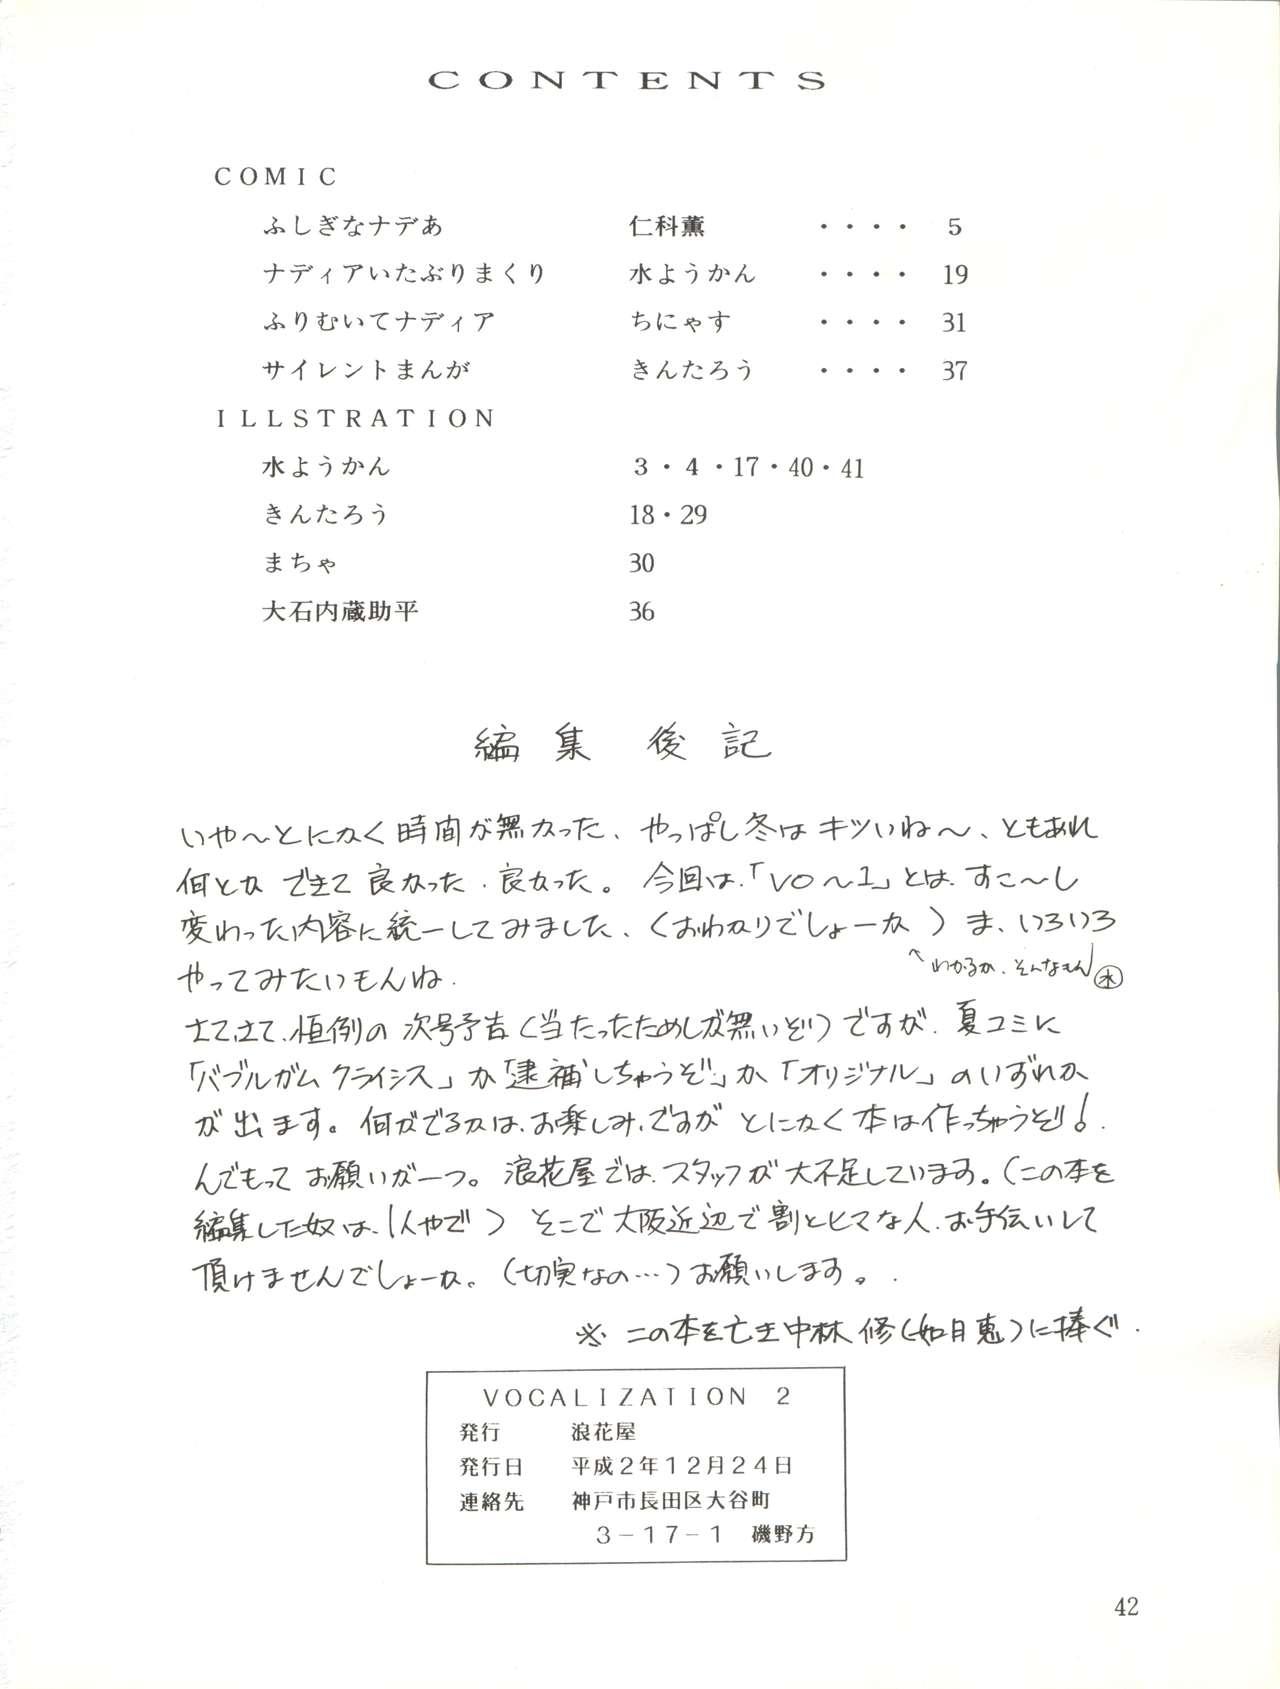 CONTENTS
COMIC
ふしぎなナデあ 仁科薫 ・・・・ 5
ナディアいたぶりまくり 水ようかん ・・・・ 19
ふりむいてナディア ちにゃす ・・・・ 31
サイレントまんが きんたろう ・・・・ 37
ILLSTRATION
水ようかん 3・4・17・40・41
きんたろう 18・29
まちゃ 30
大石内蔵助平 36
編集後記
いや〜とにかく時間が無かった、やっぱし冬はキツいね〜、ともあれ
何とか できて良かった.良かった。今回は.「VO〜1」とは.すこ〜し
変わった内容に統一してみました、(おわかりでしょーか)ま、いろいろ
↑わかるか.そんなもん 水
やってみたいもんね.
さてさて、恒例の次号予告(当たったためしが無いぞ)ですが.夏コミに
「バブルガムクライシス」か「逮捕しちゃうぞ」か「オリジナル」のいずれか
が出ます。何がでるかは、お楽しみ、ですが とにかく本は作っちゃうぞ!.
んでもって お願いが一つ。浪花屋では、スタッフが大不足しています。(この本を
編集した奴は、1人やで) そこで大阪近辺で割とヒマな人.お手伝いして
頂けませんでしょーか。(切実なの…)お願いします。.
※ この本を亡き中林 修(如月 恵)に捧ぐ.
VOCALIZATION 2
発行 浪花屋
発行日 平成2年12月24日
連絡先 神戸市長田区大谷町
3−17−1 磯野方
42